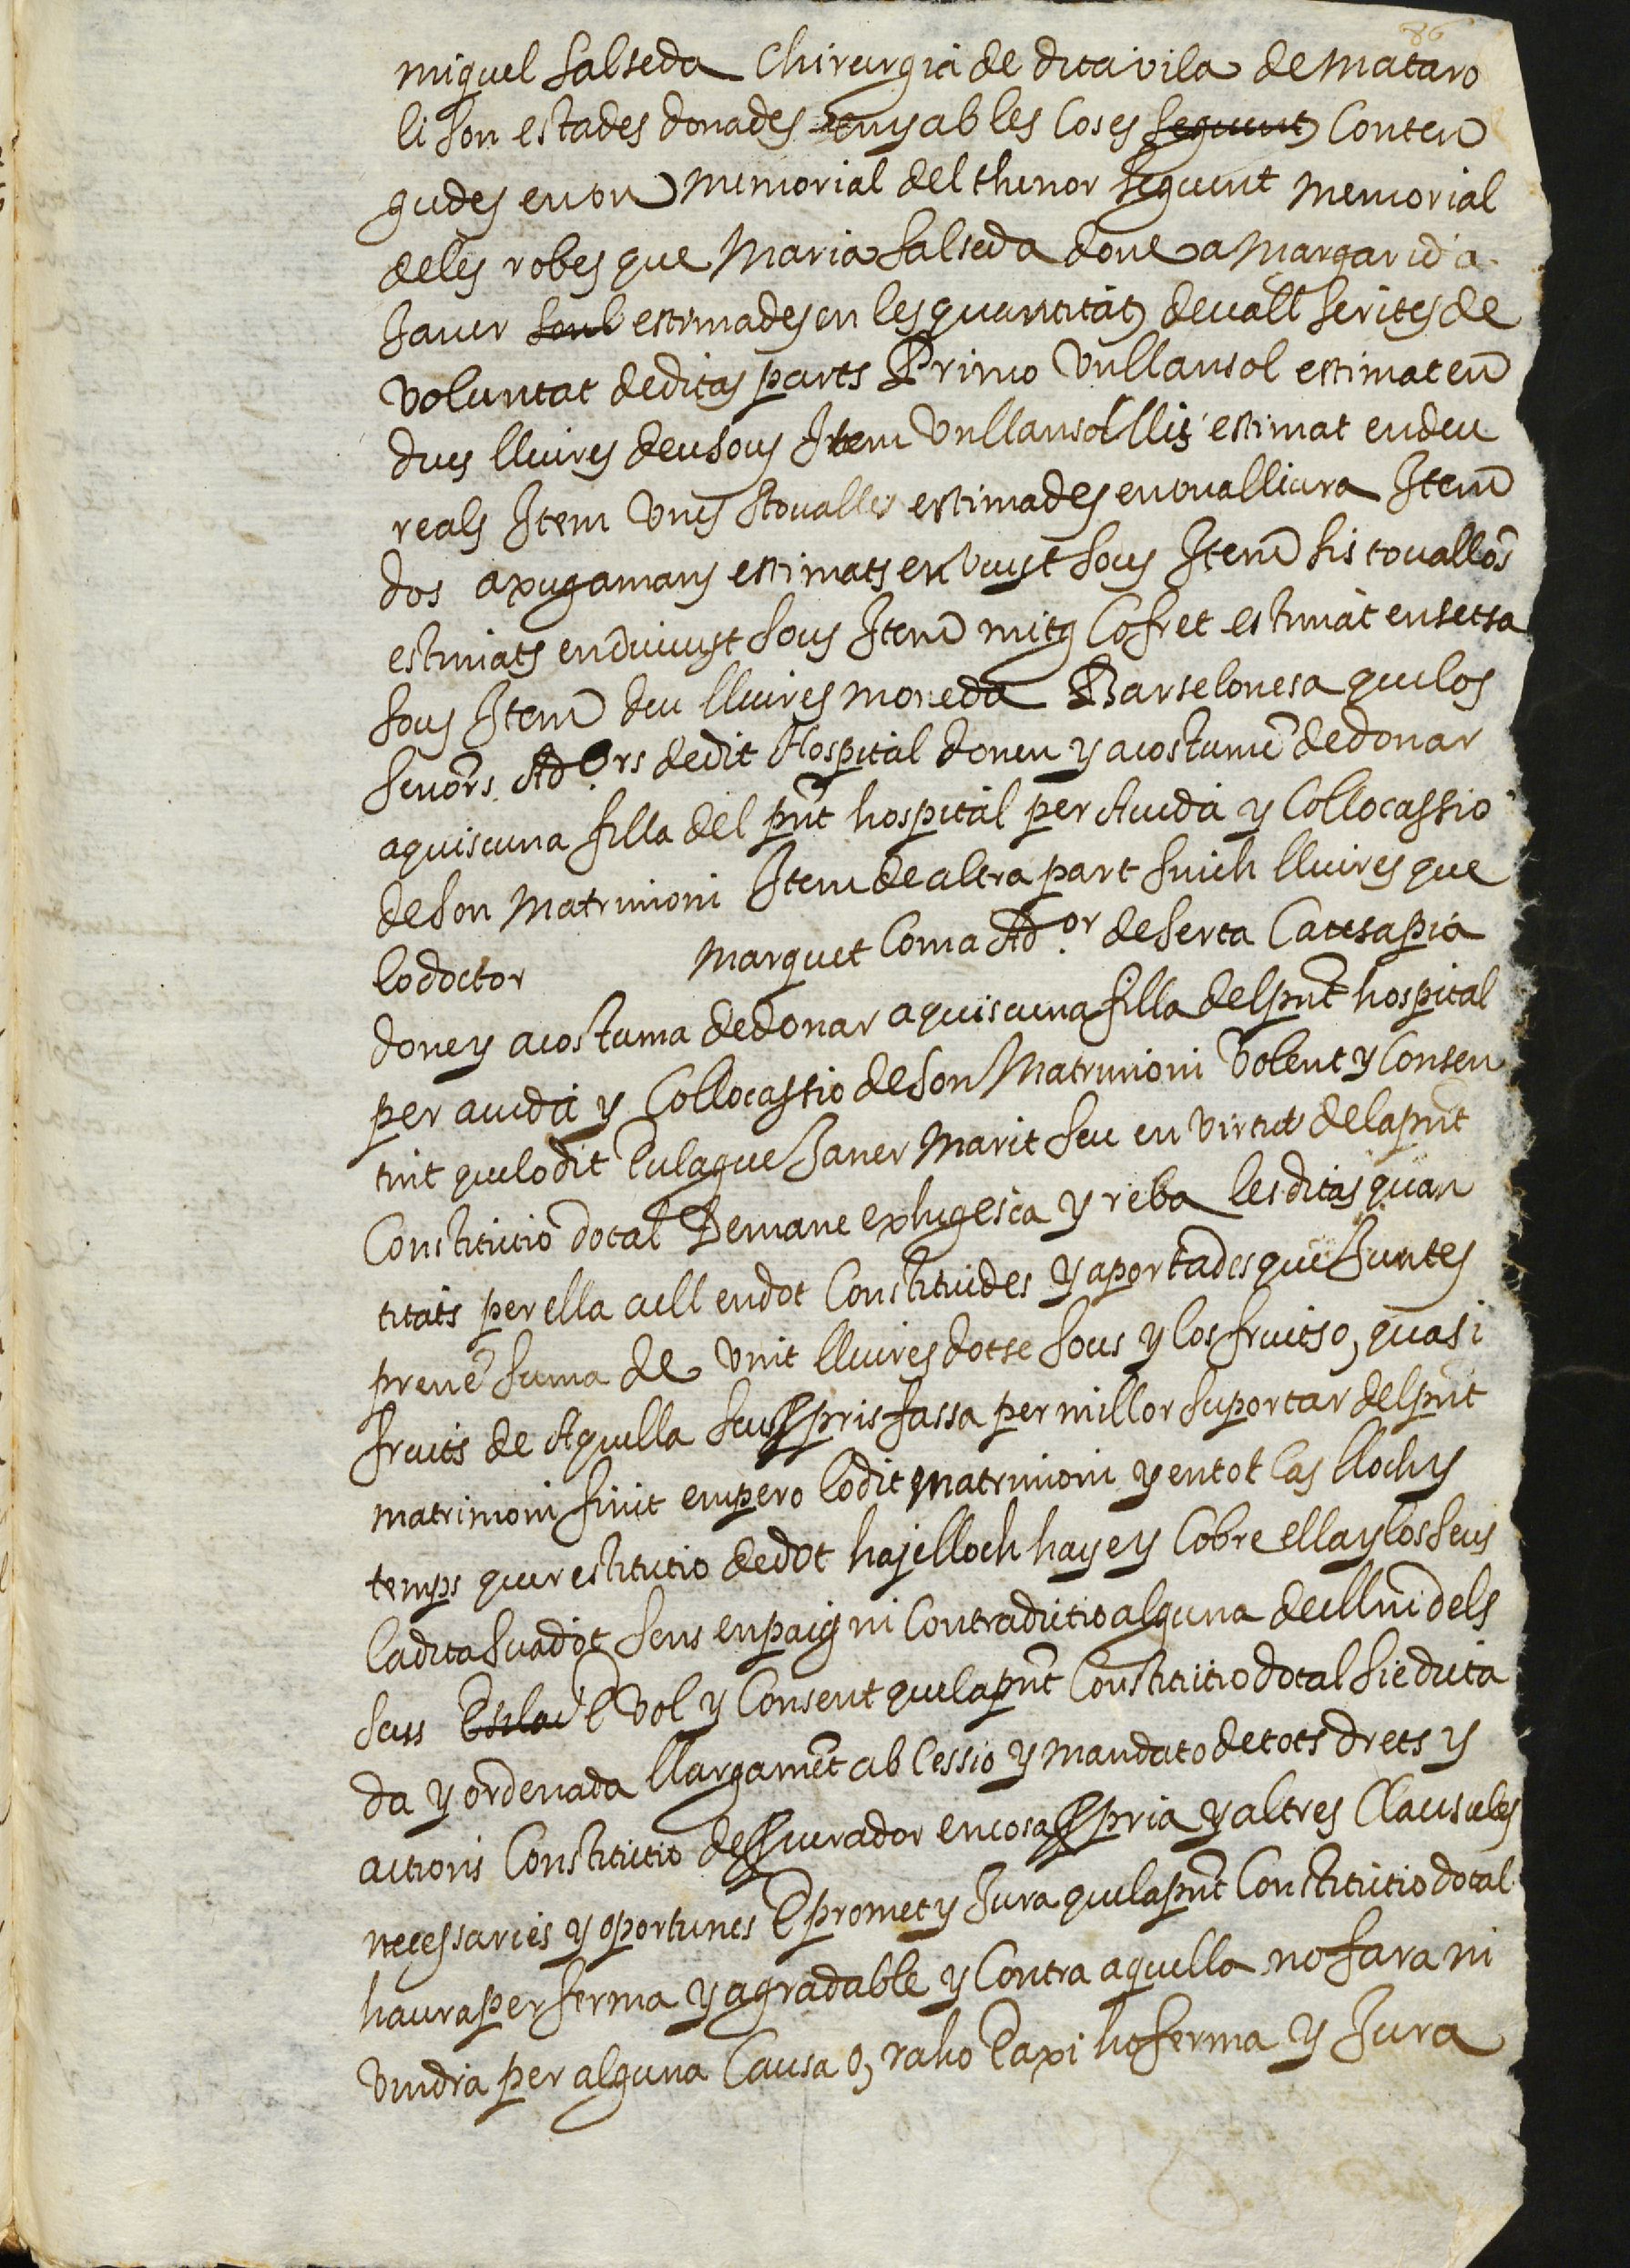 86
miquel salseda Chirurgia de dita vila de Mataro
li son estades donades ensy ab les Coses seguent Conten
gudes en vn memorial del thenor seguent memorial
deles robes que Maria Salseda done a Margarida
Janer estimades en les quantitats devall scrites de
voluntat de ditas parts Primo vn llansol estimat en
dues lliures deu sous Item vn llansol llis estimat en deu
reals Item vnes stovalles estimades en vna lliura Item
dos axugamans estimats en vuyt sous Item sis tovallōs
estimats en divuyt sous Item mitg Cofret estimat en setsa
sous Item deu lliures moneda Barselonesa quelos
senōrs Ad.ors de dit Hospital donen y acostumē de donar
a quiscuna filla del pnt hospital per Aiuda y Collocassio
de son Matrimoni Item de altra part sinch lliures que
lo doctor Marquet Coma Ad.or de serta Causa pia
done y acostuma de donar a quiscuna filla del pnt hospital
per aiuda y Collocassio de son Matrimoni volent y Consen
tint quelo dit Eulague Janer Marit seu en virtut dela pnt
Constitutio dotal Demane exhigesca y reba les ditas quan
titats per ella a ell en dot Constituides y aportades que Juntes
prenē suma de vint lliures dotse sous y los fruits o, quasi
fruits de Aquella seus ppris fassa per millor suportar del pnt
matrimoni finit empero lo dit Matrimoni y en tot Cas lloch y
temps que restitutio de dot haje lloch haye y Cobre ella y los seus
la dita sua dot sens enpaig ni Contradictio alguna de ell ni dels
seus E vol y Consent quela pnt Constitutio dotal sie dicta
da y ordenada llargamēt ab Cessio y mandato de tots drets y
actions Constitutio de pcurador en cosa ppria y altres Clausules
necessaries y oportunes E promet y Jura quela pnt Constitutio dotal
haura per ferma y agradable y Contra aquella no fara ni
vindra per alguna Causa o, raho E axi ho ferma y Jura